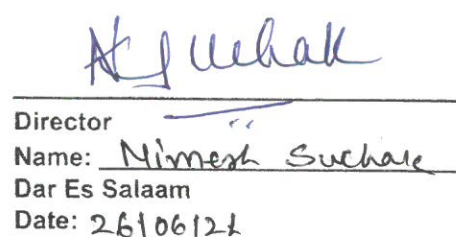 Director
Name: Nimesh Suchak
Dar Es Salaam
Date: 26/06/21